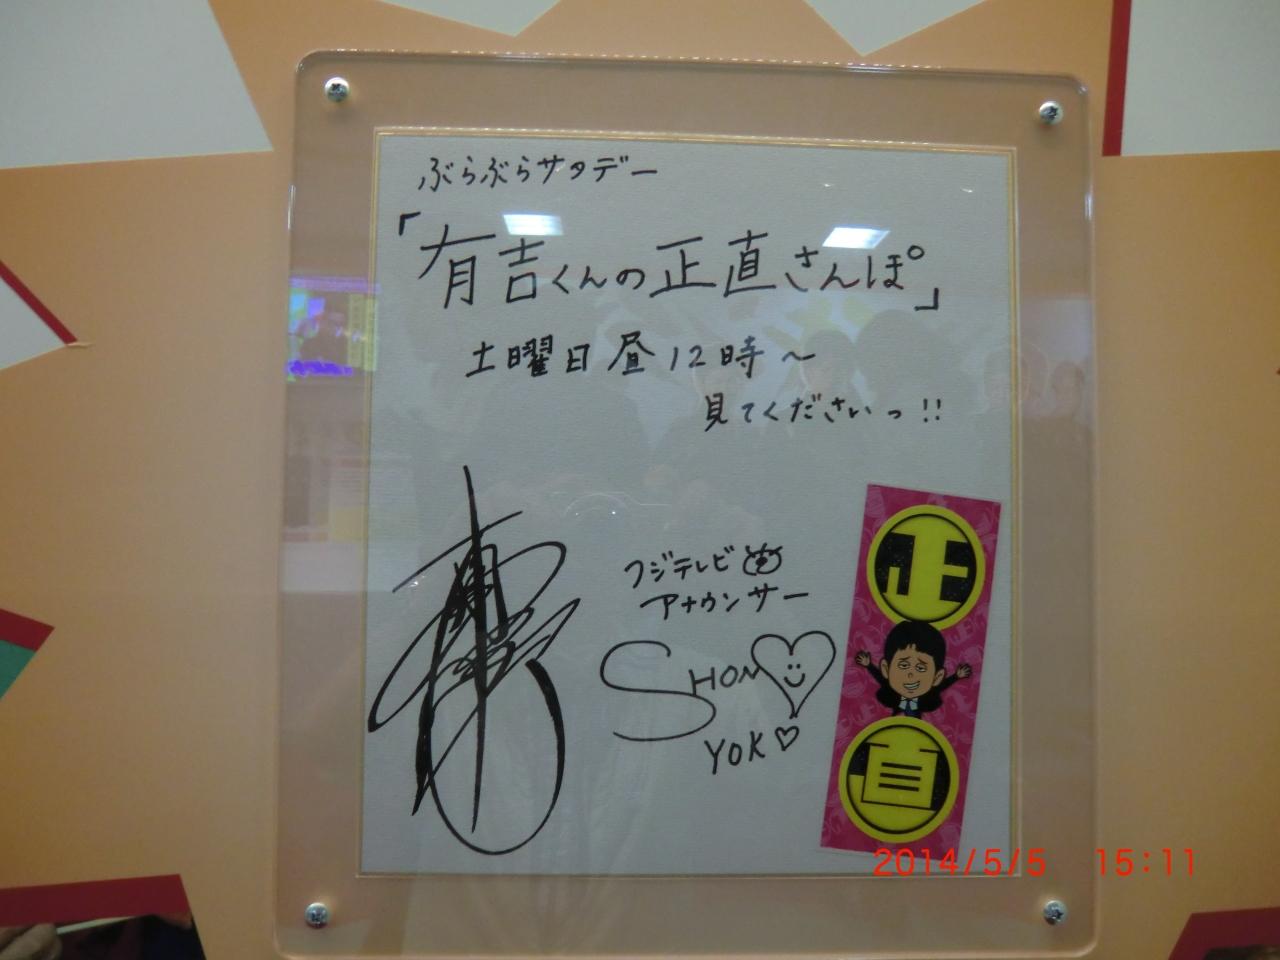 ぶらぶらサタデー
「有吉くんの正直さんぽ」
土曜日昼12時～
見てくださいっ!!
フジテレビ
アナウンサー
SHONO
YOKO
正
直
2014/5/5 15:11